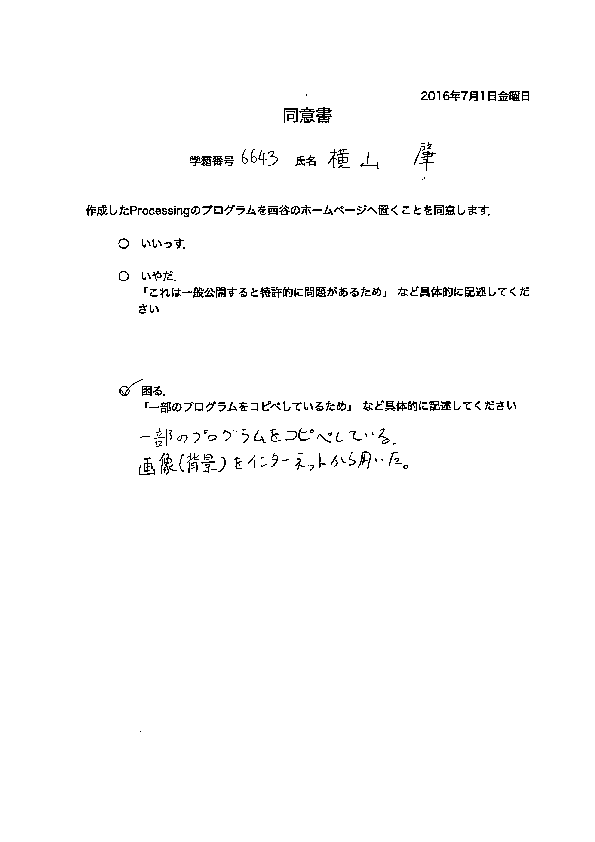 2016年7月1日金曜日
同意書
学籍番号 6643 氏名 横山 肇
作成したProcessingのプログラムを西谷のホームページへ置くことを同意します.
○ いいっす.
○ いやだ.
「これは一般公開すると特許的に問題があるため」 など具体的に記述してくだ
さい
○ 困る.
「一部のプログラムをコピペしているため」 など具体的に記述してください
一部のプログラムをコピペしている.
画像(背景)をインターネットから用いた。